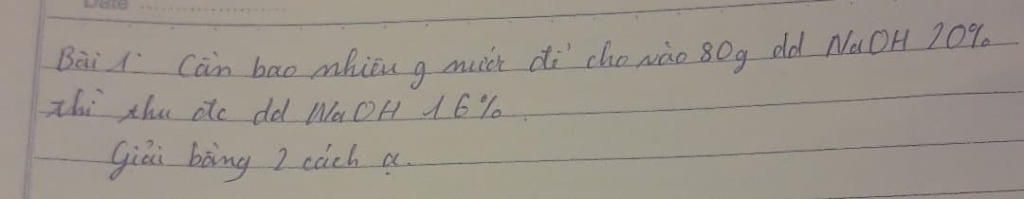 Date
Bài 1: Cần bao nhiêu g nước để cho vào 80g dd NaOH 20%
thì thu đc dd NaOH 16%.
Giải bằng 2 cách ạ.